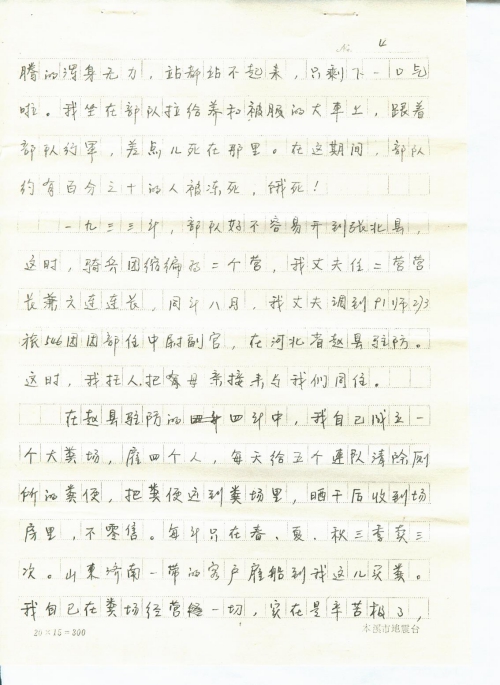 No 4
腾的浑身无力，站都站不起来，只剩下一口气
啦。我坐在部队拉给养和被服的大車上，跟着
部队行軍，差点儿死在那里。在这期间，部队
约有百分之十的人被冻死，饿死！
一九三三年，部队好不容易开到张北县，
这时，骑兵团缩编为二个营，我丈夫任二营营
长兼六连连长，同年八月，我丈夫调到91师273
旅546团团部任中尉副官，在河北省赵县驻防。
这时，我托人把母亲接来与我们同住。
在赵县驻防的四年中，我自己成立一
个大粪场，雇四个人，每天给五个連队清除厕
所的粪便，把粪便送到粪场里，晒干后收到场
房里，不零售。每年只在春、夏、秋三季卖三
次。山東济南一带的客户雇船到我这儿买粪。
我自己在粪场经营一切，实在是辛苦极了，
20×15=300 本溪市地震台